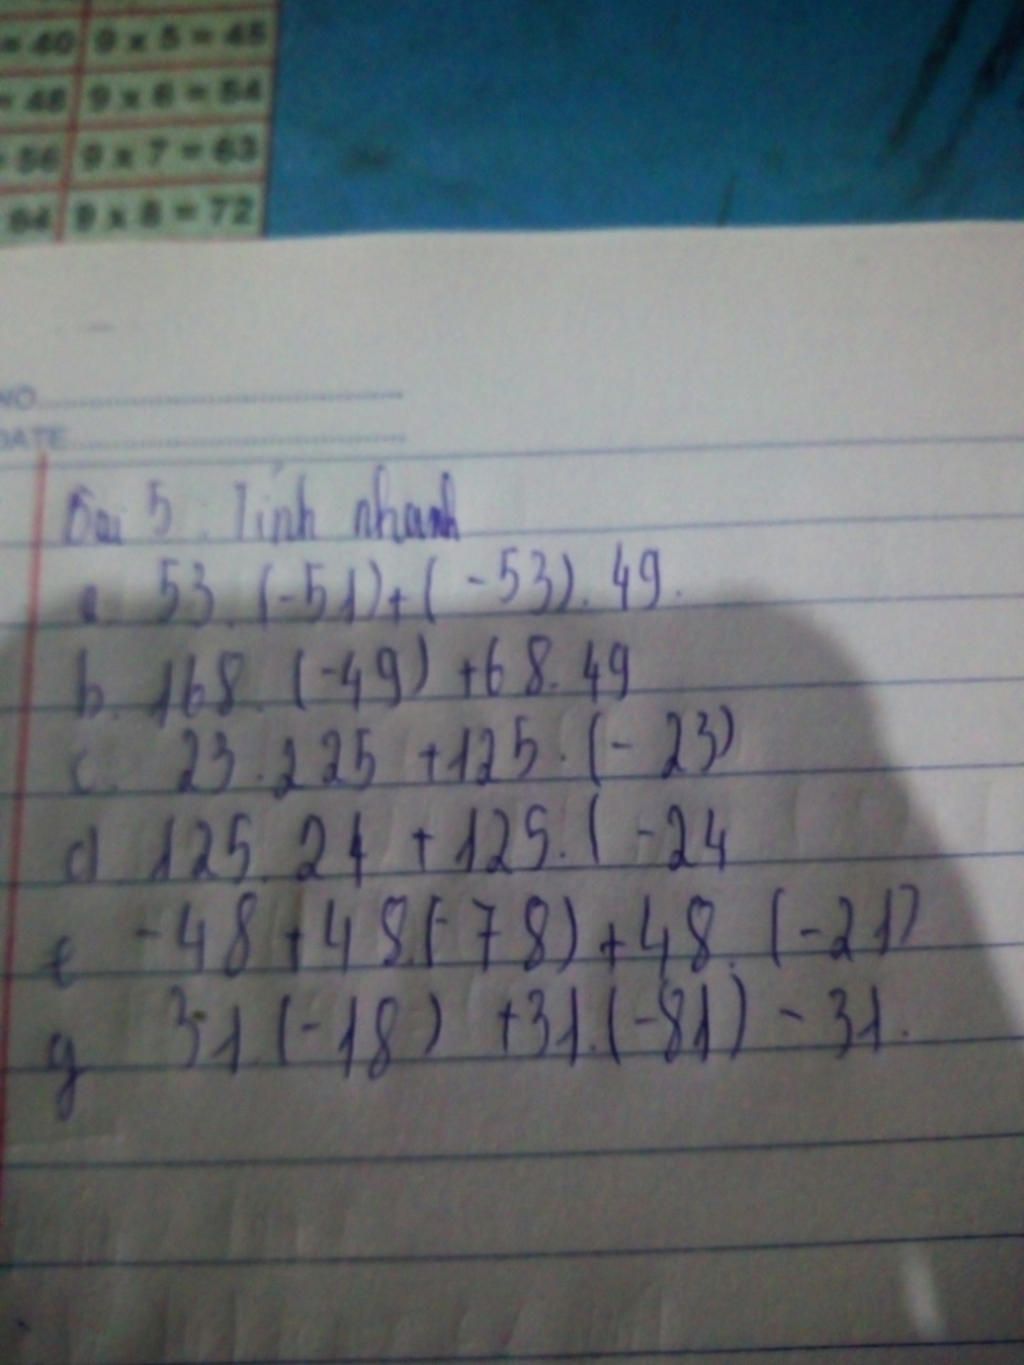 = 40 9 x 5 = 45
= 48 9 x 6 = 54
= 56 9 x 7 = 63
9 x 8 = 72
NO
DATE
Bài 5. Tính nhanh
a. 53.(-51)+(-53).49.
b. 168.(-49)+68.49
c. 23.225+125.(-23)
d 125.24+125.(-24
e -48+48.(-78)+48.(-21)
g 31.(-18)+31.(-81)-31.